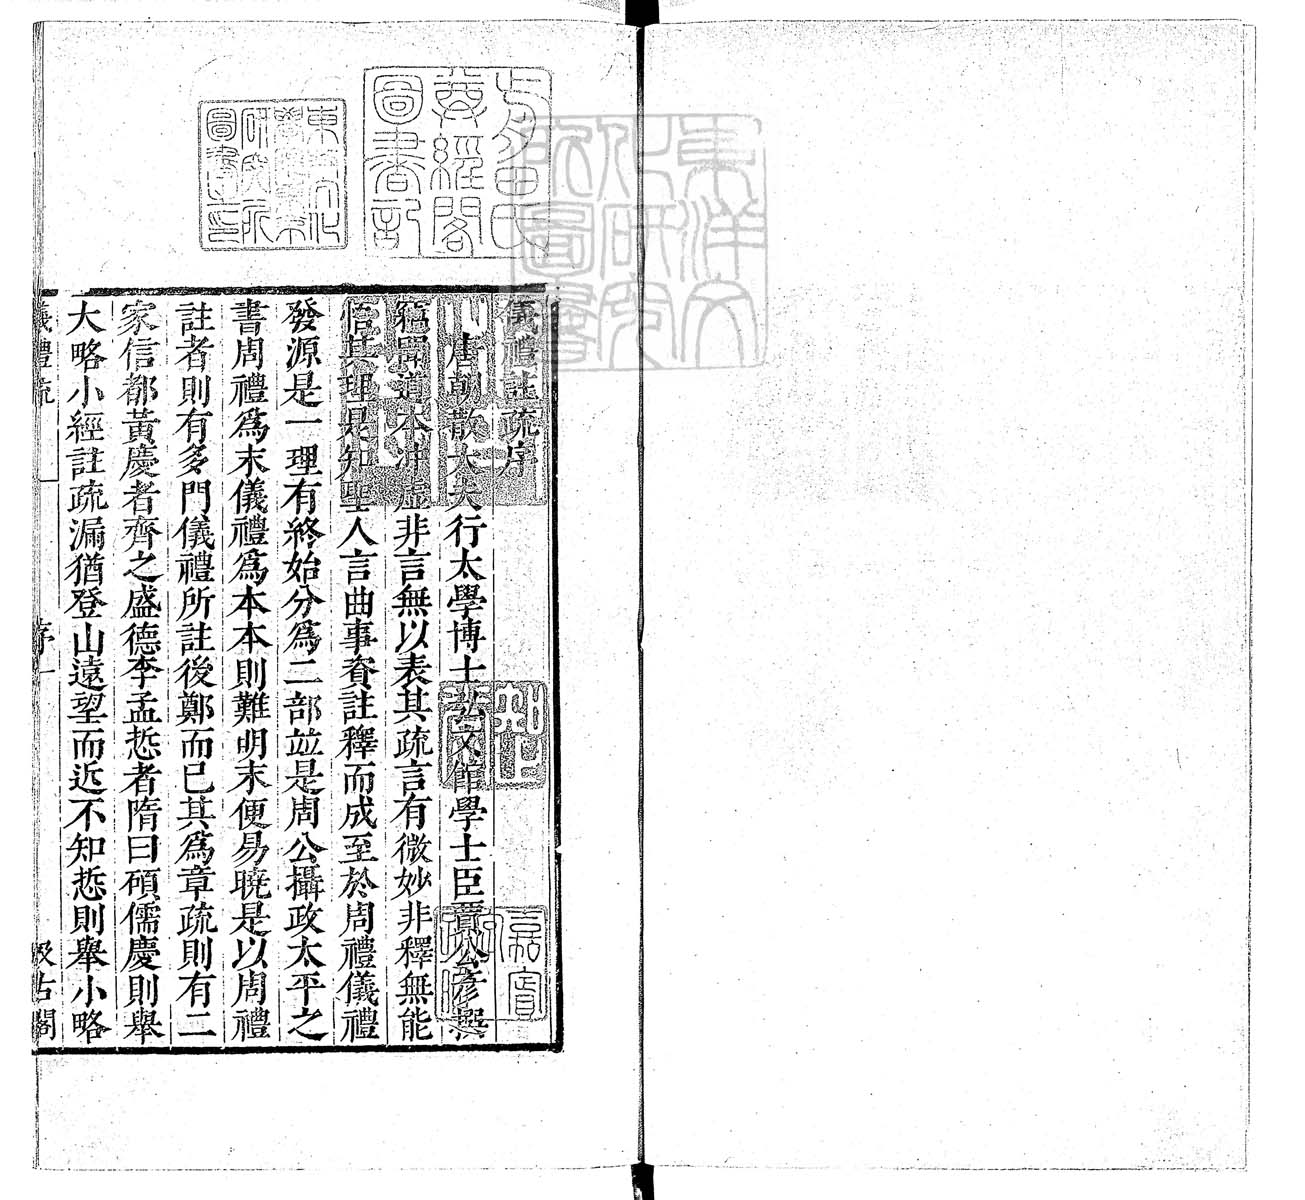 儀禮註疏序
唐朝散大夫行太學博士弘文館學士臣賈公彥撰
竊聞道本冲虛非言無以表其疏言有微妙非釋無能
悟其理是知聖人言曲事資註釋而成至於周禮儀禮
發源是一理有終始分爲二部竝是周公攝政太平之
書周禮爲末儀禮爲本本則難明末便易曉是以周禮
註者則有多門儀禮所註後鄭而已其爲章疏則有二
家信都黃慶者齊之盛德李孟悊者隋曰碩儒慶則舉
大略小經註疏漏猶登山遠望而近不知悊則舉小略
儀禮疏 序 一 汲古閣
東洋文化研究所圖書
前田氏尊經閣圖書記
東方文化學院東京研究所圖書之印